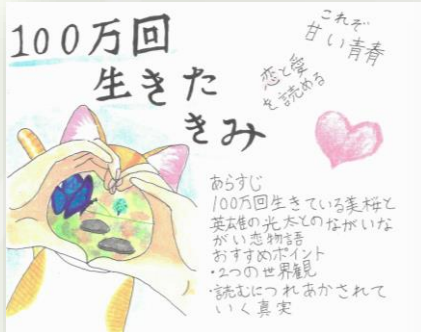 100万回
生きた
きみ
これぞ
甘い青春
恋と愛
を読める
あらすじ
100万回生きている美桜と
英雄の光太とのながいな
がい恋物語
おすすめポイント
・2つの世界観
・読むにつれあかされて
いく真実